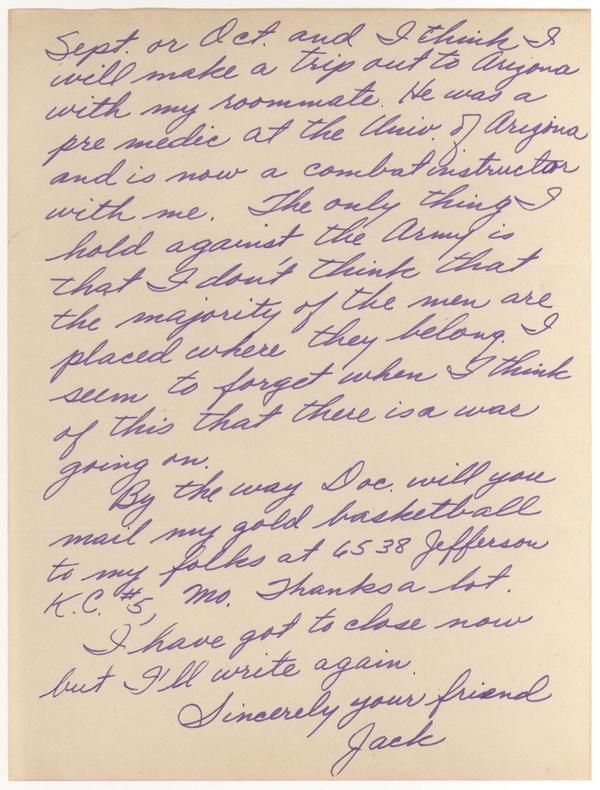 Sept. or Oct. and I think I
will make a trip out to Arizona
with my roommate. He was a
pre medic at the Univ. of Arizona
and is now a combat instructor
with me. The only thing I
hold against the Army is
that I don't think that
the majority of the men are
placed where they belong. I
seem to forget when I think
of this that there is a war
going on.
By the way Doc. will you
mail my gold basketball
to my folks at 6538 Jefferson
K.C. #5, Mo. Thanks a lot.
I have got to close now
but I'll write again.
Sincerely your friend
Jack